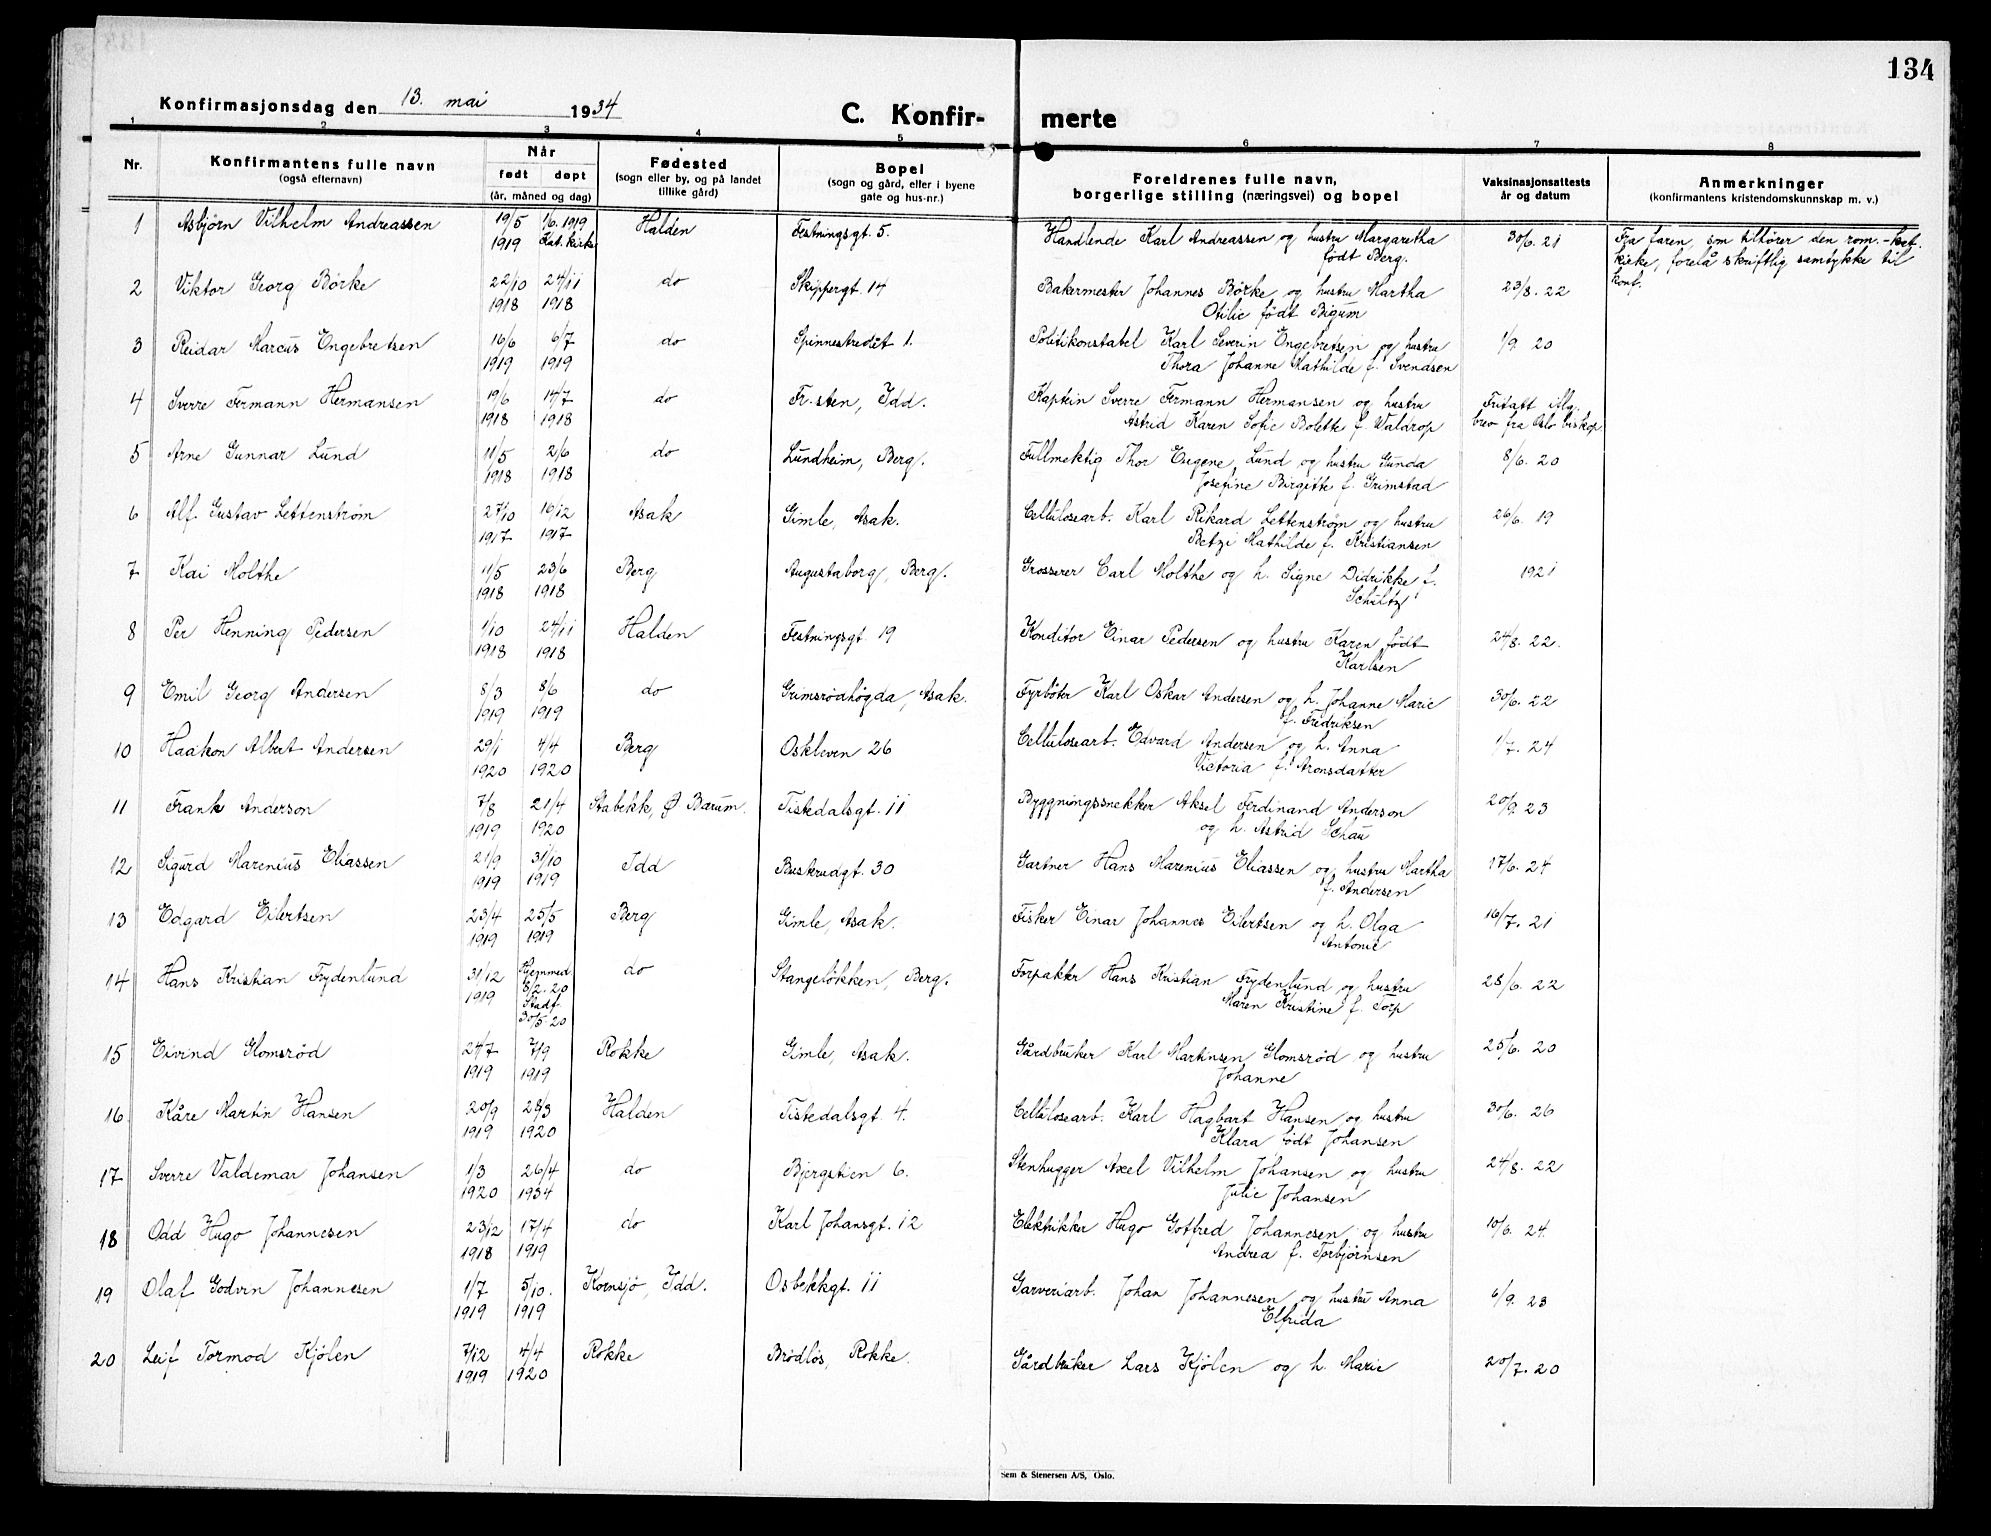 134
Konfirmasjonsdag den 13. mai 1934
C. Konfir- merte
1 2 3 4 5 6 7 8
Nr.
Konfirmantens fulle navn
(også efternavn)
Når
født døpt
(år, måned og dag)
Fødested
(sogn eller by, og på landet
tillike gård)
Bopel
(sogn og gård, eller i byene
gate og hus-nr.)
Foreldrenes fulle navn,
borgerlige stilling (næringsvei) og bopel
Vaksinasjonsattests
år og datum
Anmerkninger
(konfirmantens kristendomskunnskap m. v.)
1 Asbjørn Vilhelm Andreassen 19/5 1/6. 1919 Halden Festningsgt. 5. Handlende Karl Andreassen og hustru Margaretha 30/6. 21 Fra faren, som tilhører den rom.-kat.
1919 Kat. kirke født Berg. kirke, forelå skriftlig samtykke til
konf.
2 Viktor Georg Børke 22/10 24/11 do Skippergt. 14 Bakermester Johannes Børke og hustru Martha 23/8. 22
1918 1918 Otilie født Bigum
3 Reidar Marcus Engebretsen 16/6 6/7 do Spinnestredet 1. Politikonstabel Karl Severin Engebretsen og hustru 1/9. 20
1919 1919 Thora Johanne Mathilde f. Svendsen
4 Sverre Fermann Hermansen 19/6 14/7 do Fr.sten, Idd. Kaptein Sverre Fermann Hermansen og hustru Fritatt iflg.
1918 1918 Astrid Karen Sofie Bolette f. Waldrop brev fra Oslo biskop
5 Arne Gunnar Lund 11/5 2/6 do Lundheim, Berg. Fullmektig Thor Eugene Lund og hustru Gunda 8/6. 20
1918 1918 Josefine Birgitte f. Grimstad
6 Alf Gustav Lettenstrøm 27/10 16/12 Asak Gimle, Asak. Cellulosearb. Karl Rikard Lettenstrøm og hustru 26/6. 19
1917 1917 Betzi Mathilde f. Kristiansen
7 Kai Molthe 1/5 23/6 Berg Augustaborg, Berg. Grosserer Carl Molthe og h. Signe Didrikke f. 1921
1918 1918 Schultz
8 Per Henning Pedersen 1/10 24/11 Halden Festningsgt 19 Konditor Einar Pedersen og hustru Karen født 24/8. 22.
1918 1918 Karlsen
9 Emil Georg Andersen 8/3 8/6 do Grimsrødhøgda, Asak. Fyrbøter Karl Oskar Andersen og h. Johanne Marie 30/6. 22
1919 1919 f. Fredriksen
10 Haakon Albert Andersen 29/1 4/4 Berg Oskleven 26 Cellulosearb. Edvard Andersen og h. Anna 1/7. 24
1920 1920 Victoria f. Aronsdatter
11 Frank Anderson 7/8 21/4 Stabekk, Ø Bærum. Tistedalsgt. 11 Byggningssnekker Aksel Ferdinand Anderson 20/9. 23
1919 1920 og h. Astrid Schau
12 Sigurd Marenius Eliassen 21/9 31/10 Idd Buskrudgt. 30 Gartner Hans Marenius Eliassen og hustru Martha 17/6. 24
1919 1919 f. Andersen
13 Edgard Eilertsen 23/4 25/5 Berg Gimle, Asak. Fisker Einar Johannes Eilertsen og h. Olga 16/7. 21
1919 1919 Antonie
14 Hans Kristian Frydenlund 31/12 Hjemmed. do Stangeløkken, Berg. Forpakter Hans Kristian Frydenlund og hustru 28/6. 22
1919 8/2. 20 Maren Kristine f. Torp
Stadf.
30/5 20
15 Eivind Glomsrød 24/7 7/9 Rokke Gimle, Asak. Gårdbruker Karl Martinsen Glomsrød og hustru 25/6. 20
1919 1919 Johanne
16 Kåre Martin Hansen 20/9 28/3 Halden Tistedalsgt 4. Cellulosearb. Karl Hagbart Hansen og hustru 30/6. 26
1919 1920 Klara født Johansen
17 Sverre Valdemar Johansen 1/3 26/4 do Bjergstien 6. Stenhugger Axel Vilhelm Johansen og hustru 24/8. 22
1920 1934 Julie Johansen
18 Odd Hugo Johannesen 23/12 17/4 do Karl Johansgt. 12 Elektrikker Hugo Gotfred Johannesen og hustru 10/6. 24.
1918 1919 Andrea f. Torbjørnsen
19 Olaf Godvin Johannesen 1/7 5/10. Kornsjø, Idd. Osbekkgt. 11 Garveriarb. Johan Johannesen og hustru Anna 6/9. 23
1919 1919 Elfrida
20 Leif Tormod Kjølen 7/12 4/4 Rokke Brødløs, Rokke. Gårdbruker Lars Kjølen og h. Marie 20/7. 20
1919 1920
Sem & Stenersen A/S, Oslo.